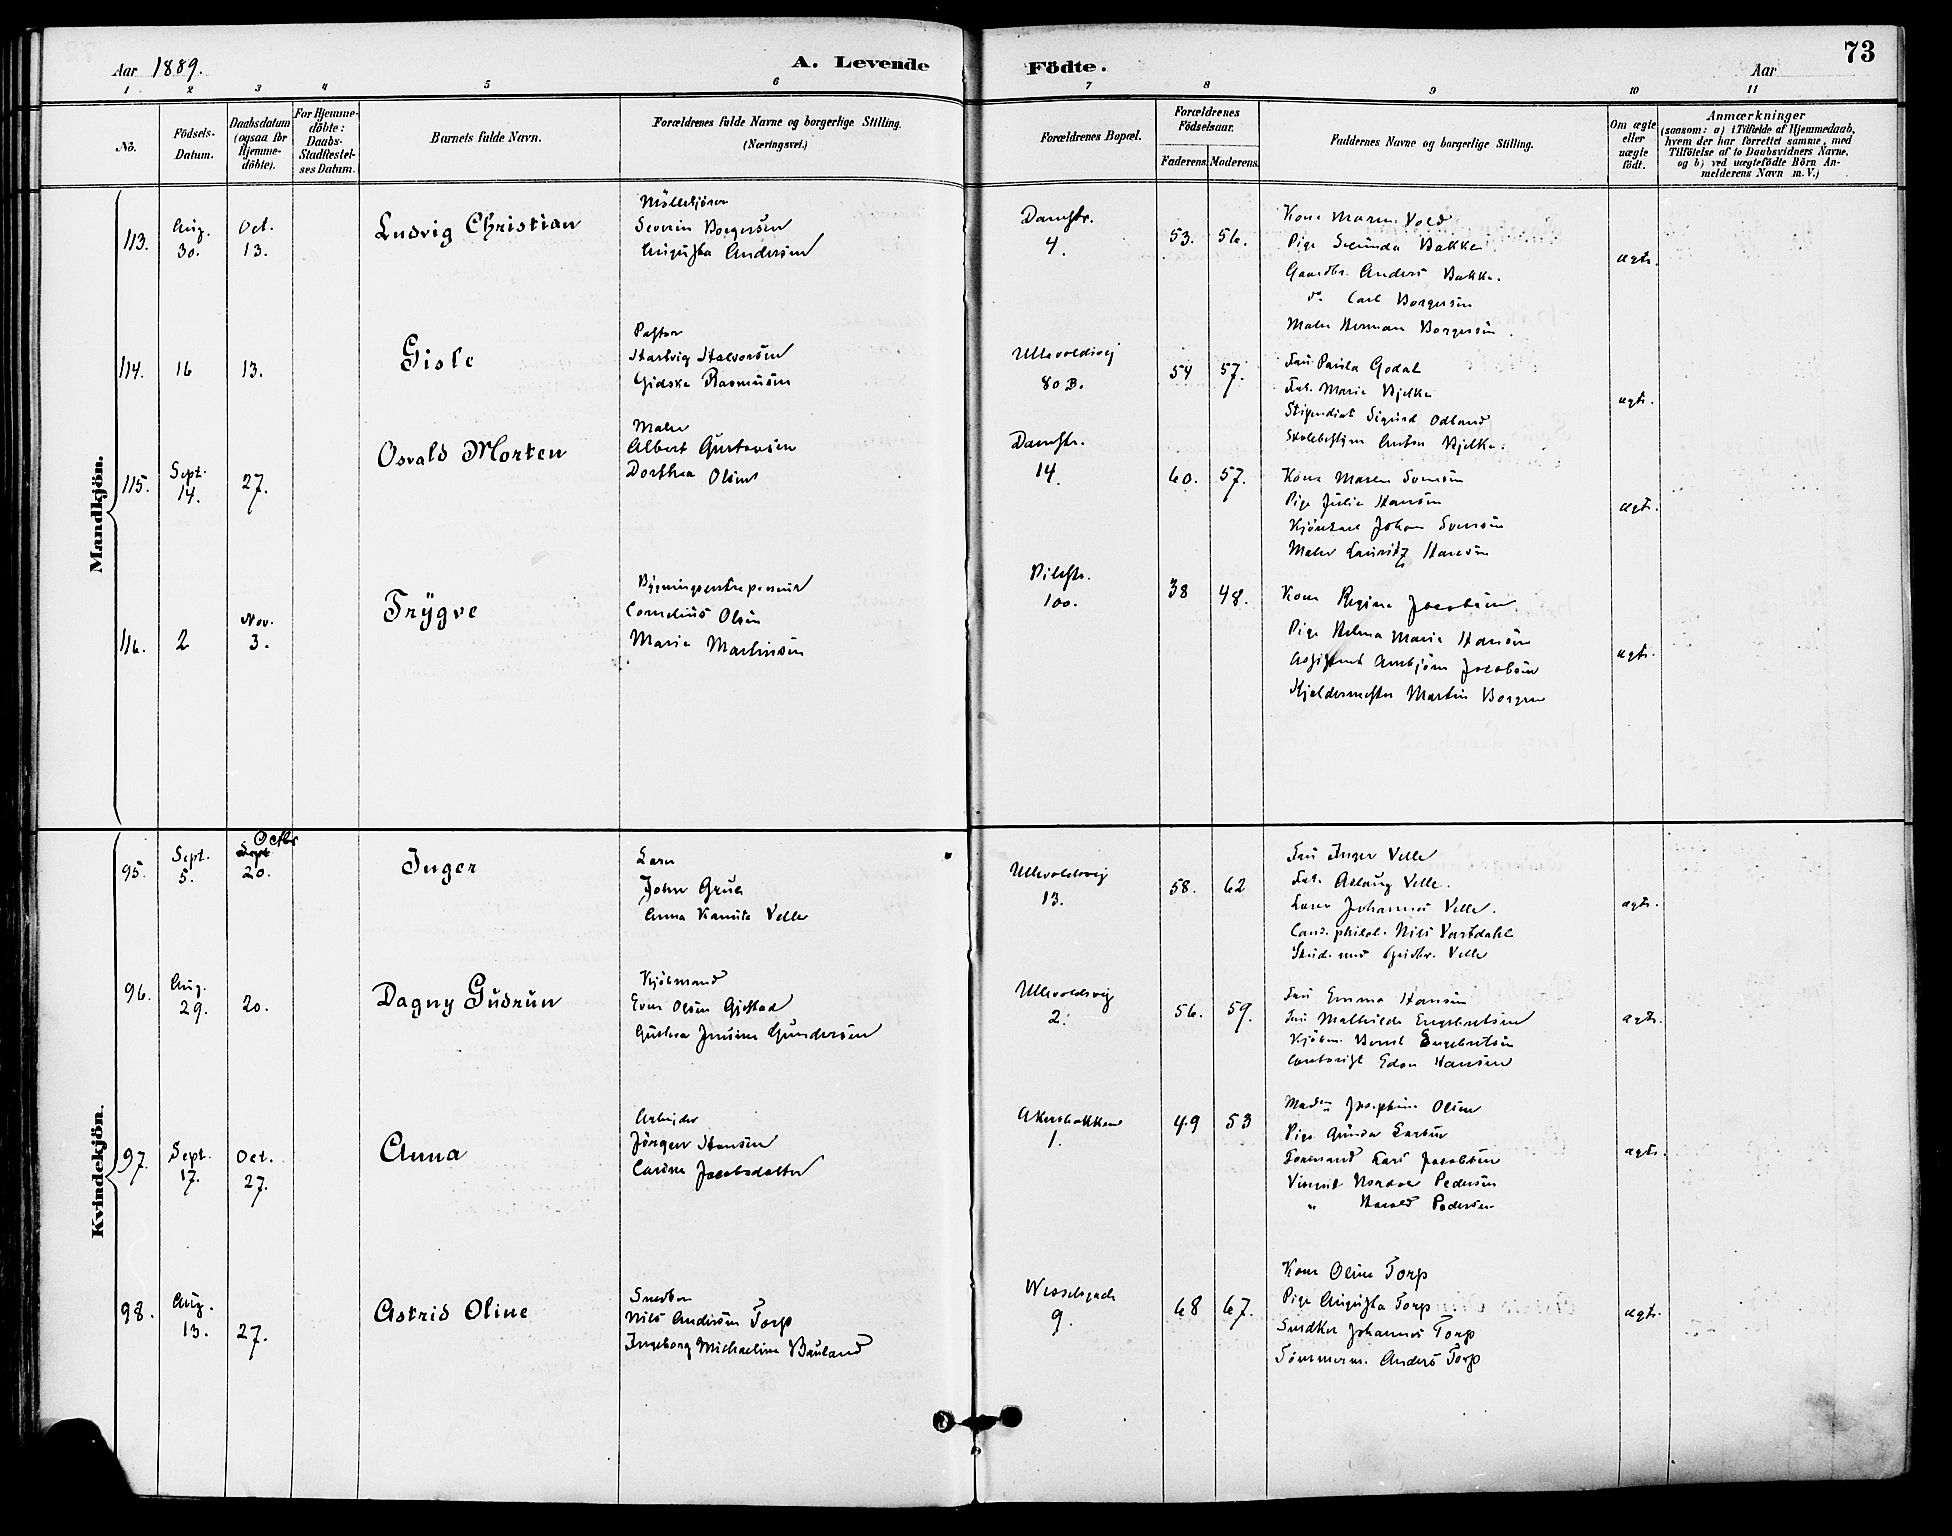 73
Aar 1889.
A. Levende Födte.
Aar
1. 2 3 4 5 6 7 8 9 10 11
No.
Födsels-Datum.
Daabsdatum (ogsaa for Hjemme-döbte).
For Hjemme-döbte: Daabs-Stadfæstel-ses Datum.
Barnets fulde Navn.
Forældrenes fulde Navne og borgerlige Stilling. (Næringsvei.)
Forældrenes Bopæl.
Forældrenes Födselsaar.
Faderens. Moderens.
Faddernes Navne og borgerlige Stilling.
Om ægte eller uægte födt.
Anmærkninger
(saasom: a) i Tilfælde af Hjemmedaab, hvem der har forrettet samme, med Tilföielse af to Daabsvidners Navne. og b) ved uægtefödte Börn An-melderens Navn m. V.)
Mandkjön.
113. Aug. 30. Oct. 13.
Ludvig Christian
Severin Borgersen
Augusta Andersen
Damstr. 4.
53. 56.
Kone Maren Vold
Pige Bakke
Gaardbr. Anders Bakke.
do. Carl Borgersen
Maler Herman Borgersen.
ægte.
114. 16 13.
Gisle
Pastor
Hartvig Halvorsen
Gidske Rasmusen
Ullevoldsvej 80 B.
54 57.
Fru Paula Godal
Frk. Marie Bjelke
Stipendiat Sigurd Odland
Skolebestyrer Anton Bjelke.
ægte.
115. Sept. 14. 27.
Osvald Morten
Maler
Albert Gustavsen
Dorthea Olsen
Damstr. 14.
60. 57.
Kone Maren Svensen
Pige Julie Hansen
Johan Svensen
Maler Lauritz Hansen
ægte.
116. 2 Nov. 3.
Trygve
Bygningsentreprenør
Cornelius Olsen
Marie Martinsen
Pilestr. 100.
38 48.
Kone Regine Jacobsen
Pige Helma Marie Hansen
Assistent Arnbjörn Jacobsen
Kjeldermester Martin Borgen
ægte.
Kvindekjön.
95. Sept. 5. Sept Octbr 20.
Inger
Lærer
John Grue
Anna Kanuta Velle
Ullevoldsvej 13.
58. 62
Fru Inger Velle
Frk. Aslaug Velle.
Lærer Johannes Velle.
Cand. philol. Nils Vartdahl
Stud. med. Velle
ægte.
96. Aug. 29. 20.
Dagny Gudrun
Kjöbmand
Even Olsen Gjestad
Gustava Jensine Gundersen
Ullevoldsvej 2.
56. 59.
Fru Emma Hansen
Fru Mathilde Engebretsen
Kjöbm. Bernt Engebretsen
Contorist Edon Hansen
ægte.
97. Sept. 17. Oct. 27.
Anna
Arbejder
Jörgen Hansen
Carine Jacobsdatter
Akersbakken 1.
49 53
Madam Josephine Olsen
Pige Gunda Larsen
Formand Lars Jacobsen
Nordov Pedersen
" Harald Pedersen
ægte.
98. Aug. 13. 27.
Astrid Oline
Snedker
Nils Andersen Torp
Ingeborg Michaeline Bauland
Wesselsgade 9.
68 67.
Kone Oline Torp
Pige Augusta Torp
Snedker Johannes Torp
Tömmerm. Anders Torp
ægte.